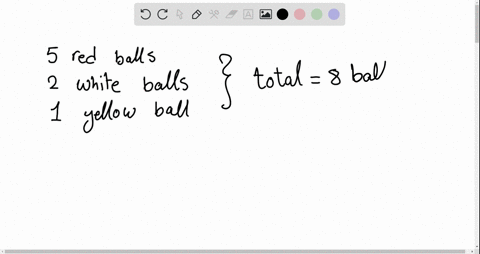 5 red balls
2 white balls
1 yellow ball
total = 8 bal